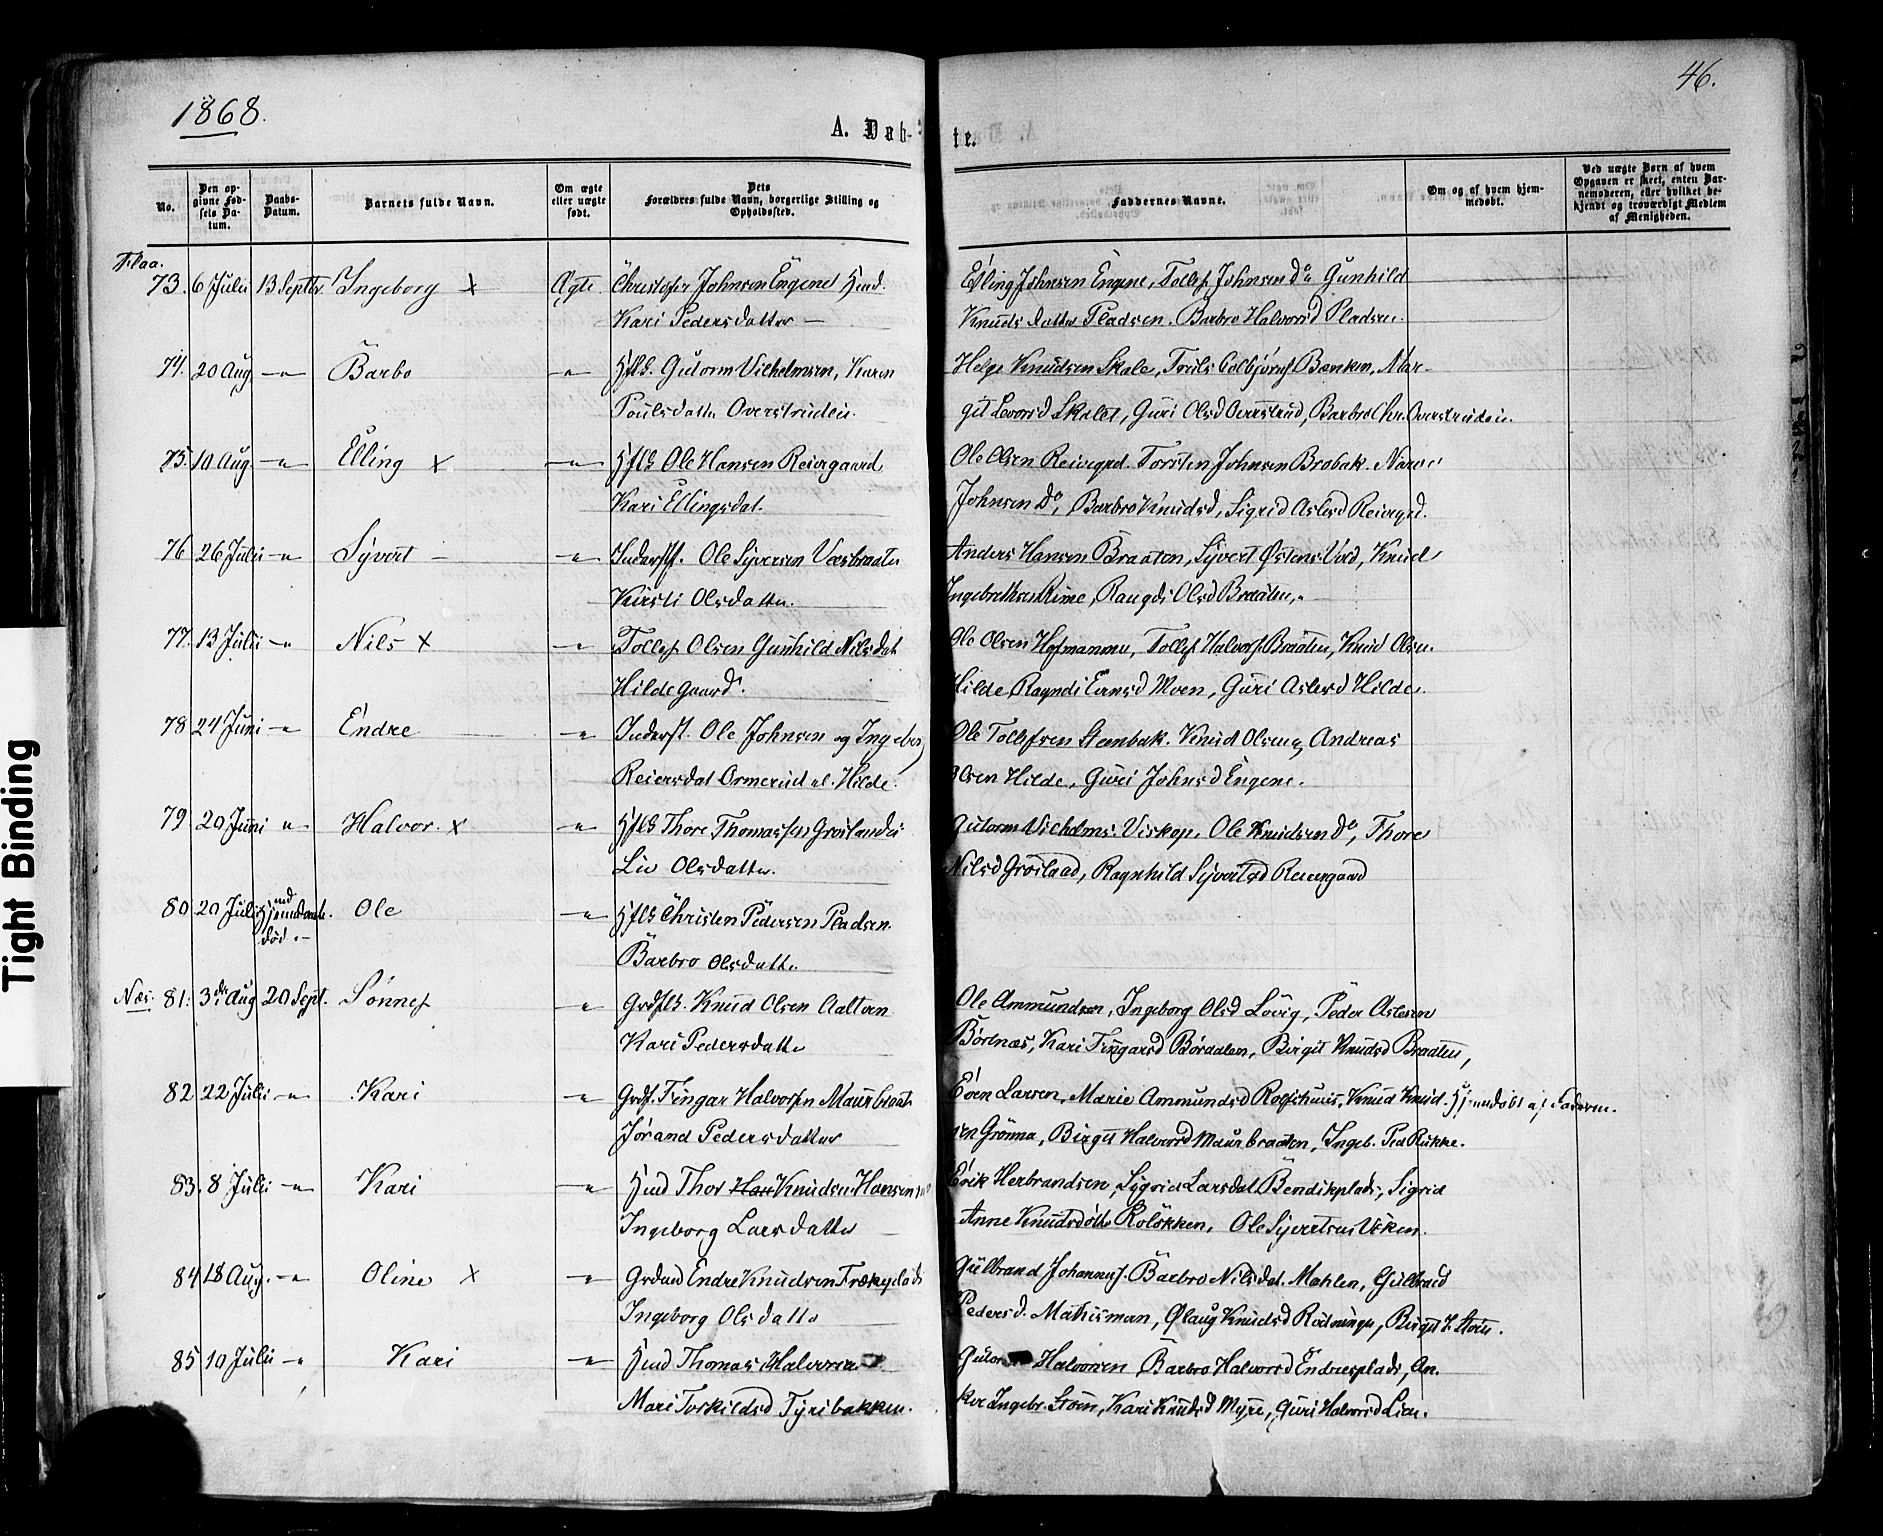 1868.
46.
A. Døb-
te.
No.
Den op-
givne Fød-
sels Da-
tum.
Daabs-
Datum.
Barnets fulde Navn.
Om ægte
eller uægte
født.
Dets
Forældres fulde Navn, borgerlige Stilling og
Opholdssted.
Faddernes Navne.
Om og af hvem hjem-
medøbt.
Ved uægte Børn af hvem
Opgaven er skeet, enten Bar-
nemoderen, eller hvilket be-
kjendt og troværdigt Medlem
af Menigheden.
Flaa.
73. 6 Julii 13 Septbr. Ingeborg x Ægte Christofer Johnsen Engene Hmd.
Kari Pedersdatter —
Elling Johnsen Engene, Tollef Johnsen Do Gunhild
Knuds datter Pladsen. Barbro Halvorsd Pladsen.
74. 20 Aug —"— Barbo —"— Hflk. Gutorm Vilhelmsen, Karen
Poulsdatter Overstruden.
Helge Knudsen Skale, Truls Colbjørns Banken, Mar-
git Levorsd Skalet, Guri Olsd Overstrud, Barbro Chr. Overstruden.
75. 10 Aug —"— Elling x —"— Hflk Ole Hansen Reiergaard
Kari Ellingsdat.
Ole Olsen Reiergrd. Torsten Johnsen Brobak.
Johnsen Do, Barbro Knudsd, Sigrid Aslesd Reiergrd.
76 26 Julii —"— Syvert — —"— Inderst. Ole Syversen
Kirsti Olsdatter.
Anders Hansen Braaten, Syvert Østens Vold, Knud
Ingebrethsen Rime, Raugdi Olsd Braaten,
77. 13 Julii —"— Nils x —"— Tollef Olsen Gunhild Nilsdat
Hilde gaard.
Ole Olsen Hofmanmo, Tollef Halvors Braaten, Knud Olsen.
Hilde, Ragndi Evensd Moen, Guri Aslesd Hilde.
78 24 Juni —"— Endre —"— Inderst. Ole Johnsen og Ingebor
Reiersdat Ormerud al. Hilde.
Ole Tollefsen Stenbak. Knud Olsen og Andreas
Olsen Hilde, Guri Johnsd Engene.
79. 20 Juni —"— Halvor. x —"— Hflk Thore Thomassen
Liv Olsdatter.
Gutorm Vilhelms. Viskop, Ole Knudsen Do, Thore
Nilsd Grøslaad, Ragnhild Syvertsd Reiergaard
80 20 Julii Hjemdøbt. død. — Ole —"— Hflk Christen Pedersen Pladsen.
Barbro Olsdatter.
Næs. 81. 3die Aug 20 Sept. Sønnef —"— Grdflk. Knud Olsen Aaltven
Kari Pedersdatter
Ole Ammundsen, Ingeborg Olsd Løvig, Peder Aslesen
Børtnæs, Kari Tingarsd Børdalen, Birgit Knudsd Braaten,
82 22 Julii —"— Kari —"— Grdf. Tingar Halvorsen Maurbraat
Jørand Pedersdatter
Even Larsen, Marie Ammundsd Rolfshuus, Knud Knud- Hjemdøbt af Faderen.
sen Grønna, Birgit Halvorsd Maurbraaten, Ingeb. Ped Rukke.
83. 8 Julii —"— Kari —"— Hmd Thor Knudsen Hansen
Ingeborg Larsdatter
Erik Herbrandsen, Sigrid Larsdat Bendikplads, Sigrid
Anne Knudsdatt Roløkken, Ole Syvertsen
84 18 Aug. —"— Oline x —"— Grdmd Endre Knudsen
Ingeborg Olsdatter
Gulbrand Johannes. Barbro Nilsdat. Mæhlen, Gulbrand
Pedersd. Mathisman, Ølaug Knudsd
85 10 Julii —"— Kari —"— Hmd Thomas Halvorsen
Mari Torkildsd Tyribakken.
Gutor Halvorsen Barbro Halvorsd Endresplads, An-
Ingebr. Støen, Kari Knudsd Myre, Guri Halvorsd Lien.
Tight Binding